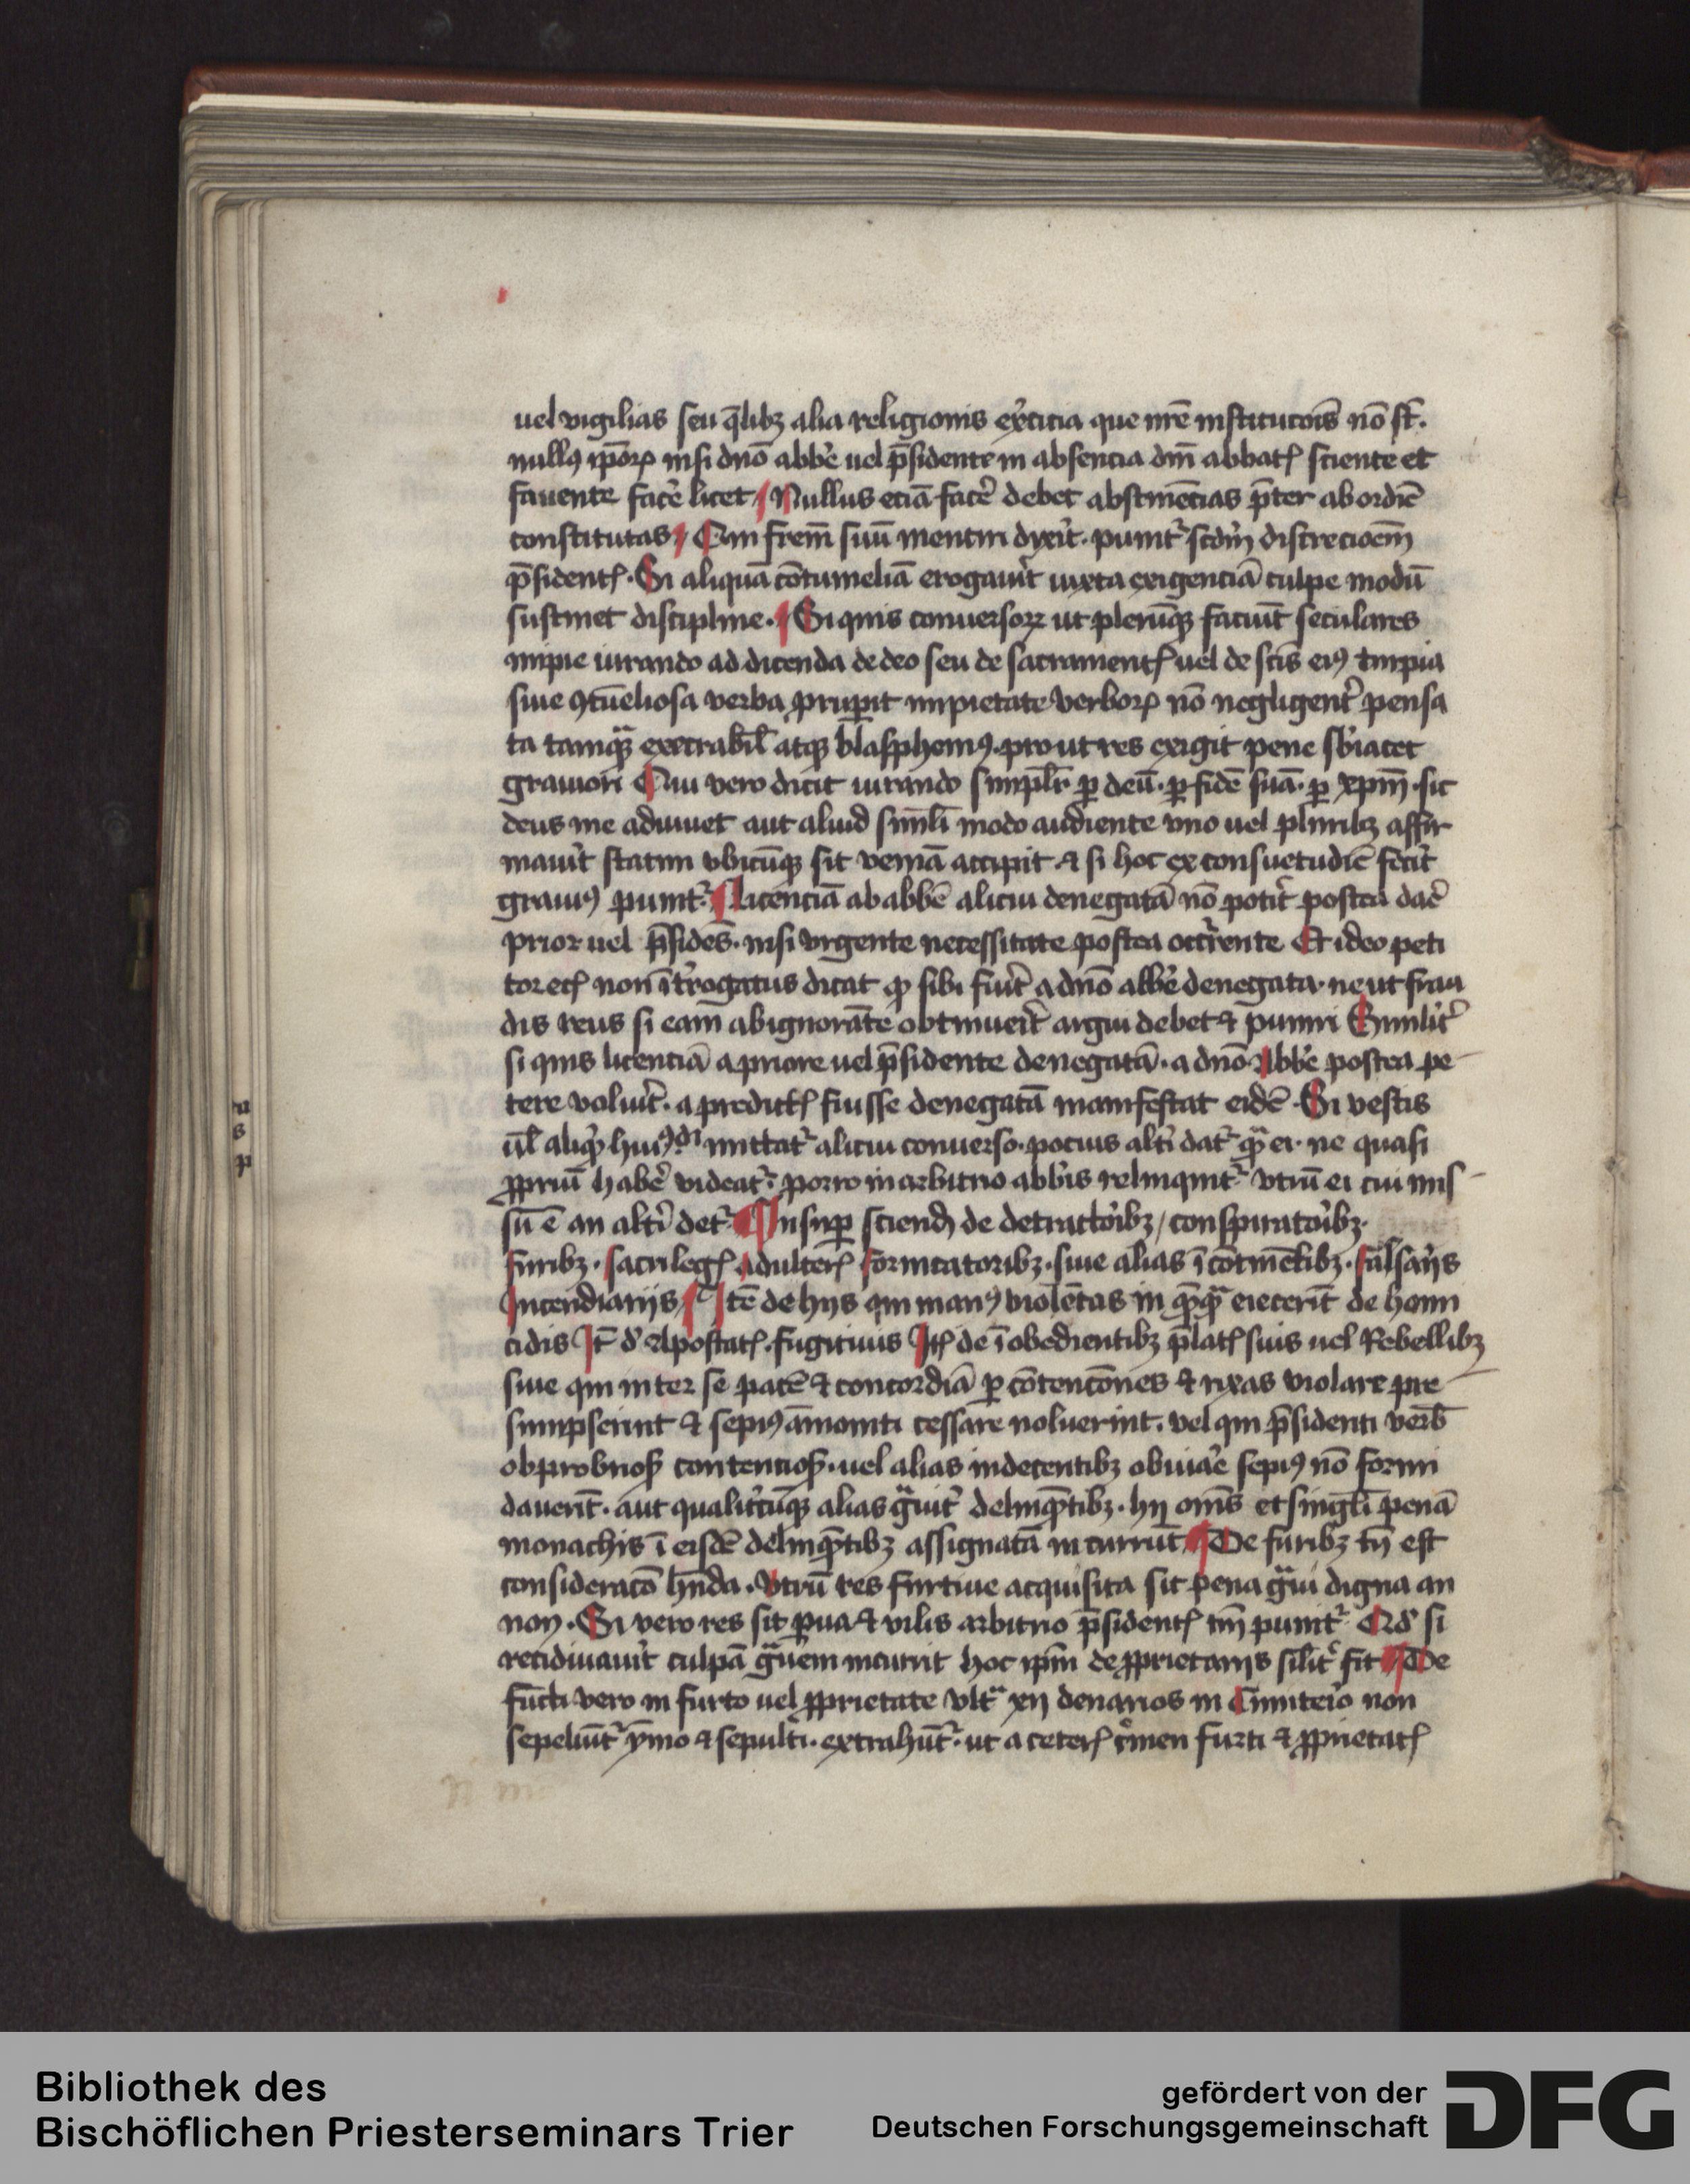 uel vigilias seu q̄libꝫ alia religionis ex̾citia que nr̄e institutōis nō st̄.
nullꝰ ip̄oꝝ nisi dn̄o abbe̾ uel p̄sidente in absencia dn̄i abbatꝭ sciente et
fauente face̾ licet Nullus eciā face̾ debet abstinēcias p̄ter ab ordīe
constitutas Qui frem̄ suū mentiri dixi̾t. punit᷑ scdm̄ discrecioem̄
p̄sidentꝭ. Si aliquā cōtumeliā erogaui̾t iuxta exigenciā culpe modū
sustinet discipline. Si quis conuersoꝝ ut plerūqꝫ faciūt seculares
impie iurando ad dicenda de deo seu de sacramentꝭ uel de scīs eiꝰ impia
siue ꝯtūeliosa verba prup̄it impietate verboꝝ nō negligent̾ pensa
ta tamqᷓꝫ execrabil̄ atqꝫ blasphemꝰ. prout res exigit pene sb̾iacet
grauiori Qui vero dicit iurando simpl̄r ꝑ deū. ꝑ fidē suā. ꝑ xpm̄. sic
deus me adiuuet aut aliud simil̄i modo audiente vno uel pluribꝫ affir
maui̾t statim vbicūqꝫ sit veniā accipit ⁊ si hoc ex consuetudīe feci̾t
grauiꝰ punit᷑. Licenciā ab abbē alicui denegatā nō poti̾t postea dar̄e
prior uel p̄sidēs. nisi vrgente necessitate postea occ̾rente Et ideo peti
tor ecꝭ non īt̾rogatus dicat ꝙ sibi fui̾t a dn̄o abbe̾ denegata. ne ut frau
dis reus si eam ab ignorāte obtinuei̾t argui debet ⁊ puniri Simili̾t
si quis licenciā a priore uel p̄sidente denegatā. a dn̄o abbe̾ postea pe-
tere volui̾t. a predictꝭ fuisse denegatā manifestat eidē. Si vestis
ūl aliqᷣ huiꝰᵈⁱ mittat᷑ alicui conuerso. pocius alti̾ dat᷑ qᷓ ei. ne quasi
ꝓpriū habe̾ videat᷑. porro in arbitrio abbis relinquit᷑ vtrū ei cui mis-
sū ē an alti̾ det᷑. Insuꝑ sciend̄ de detractoi̾bꝫ, conspiratoi̾bꝫ.
furibꝫ. sacrilegꝭ adulterꝭ fornicatoribꝫ. siue alias īcōtinētibꝫ. falsarijs
Incendiarijs Itē de hijs qui manꝰ violētas in qᷓqᷓ eiecerīt de homi
cidis Īt d̾ Apostatꝭ. fugitiuis Itꝭ de īobedientibꝫ p̄latꝭ suis uel Rebellibꝫ
siue qui inter se pacē ⁊ concordiā ꝑ cōtencōnes ⁊ rixas violare pre-
sumpserint ⁊ sepiꝰ āmoniti cessare noluerint. vel qui p̄sidenti verb̄
obprobriosꝭ contenciosꝭ. uel alias indecentibꝫ obuiar̄e sepiꝰ nō formi
dauerīt. aut qualit̾cūqꝫ alias gᷓuit̾ delinqᷓtibꝫ. hij om̄s et singl̄i penā
monachis ī eisdē delinqᷓtibꝫ assignatā incurrūt De furibꝫ tn̄ est
consideracō hn̄da. Vtrū res furtiue acquisita sit pena gᷓui digna an
non. Si vero res sit ꝑua ⁊ vilis arbitrio p̄sidentꝭ tn̄ punit᷑ Qd̾ si
recidiuaui̾t culpā gᷓuem incurrit hoc ip̄m de ꝓprietarijs silit̾ fit De
functi vero in furto uel ꝓprietate vltᷓ xij denarios in Cimiteri̾o non
sepeliūt᷑ ym̄o ⁊ sepulti. extrahūt᷑. ut a ceterꝭ c̾men furti ⁊ ꝓprietatꝭ
Bibliothek des
Bischöflichen Priesterseminars Trier
gefördert von der
Deutschen Forschungsgemeinschaft
DFG